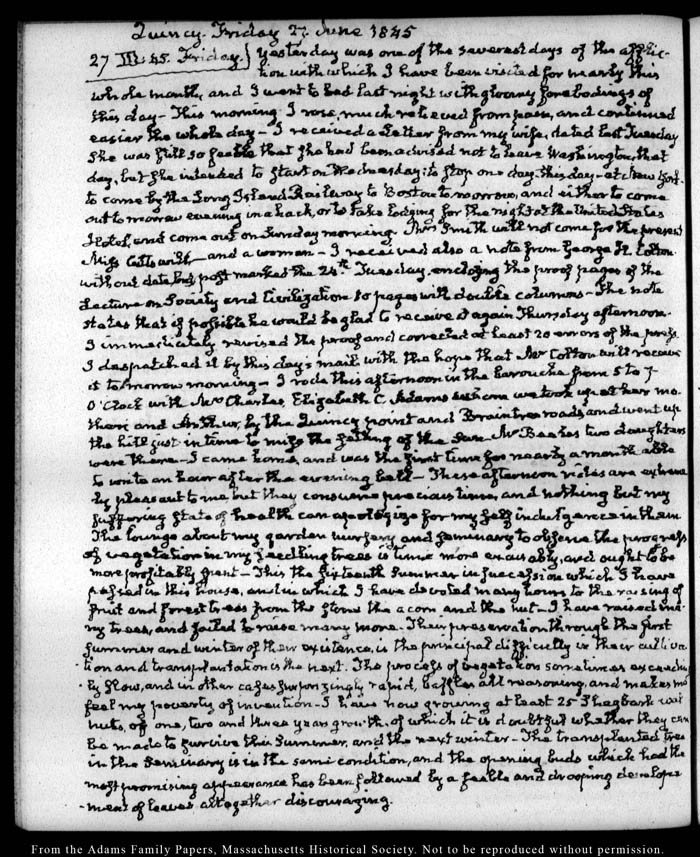 Quincy. Friday 27. June 1845
27 III:45. Friday. } Yesterday was one of the severest days of the afflic-
tion with which I have been visited for nearly this
whole month, and I went to bed last night with gloomy forebodings of
this day – This morning I rose, much relieved from pain, and continued
easier the whole day – I received a Letter from my wife, dated last Tuesday
She was still so feeble that she had been advised not to leave Washington, that
day, but she intended to start on Wednesday; to stop one day, this day – at New York
to come by the Long Island Railway to Boston to morrow, and either to come
out to morrow evening in a hack, or to take lodging for the night at the United States
Hotel, and come out on Sunday morning. Mrs Smith will not come for the present
Miss and a woman – I received also a note from George H. Colton
without date, but post marked the 24th. Tuesday, enclosing the proof pages of the
Lecture on Society and Civilization 10 pages with double columns – The note
states that if possible he would be glad to receive it again Thursday afternoon.
I immediately revised the proof and corrected at least 20 errors of the press
I despatched it by this day's mail with the hope that Mr Colton will receive
it to morrow morning – I rode this afternoon in the barouche from 5 to 7
O'Clock with Mrs Charles, Elizabeth C. Adams whom we took up at her mo-
ther's and Arthur, by the Quincy point and Braintree roads, and went up
the hill just in time to miss the setting of the Sun. Mr Beales two daughters
were there – I came home, and was the first time for nearly a month able
to write an hour after the evening bell – These afternoon rides are extreme-
ly pleasant to me, but they consume precious time, and nothing but my
suffering state of health can apologize for my self indulgence in them
The lounge about my garden nursery and seminary to observe the progress
of vegetation in my seedling trees is time more excusably, and ought to be
more profitably spent – This the fifteenth Summer in succession which I have
passed in this house, and in which I have devoted many hours to the raising of
fruit and forest trees from the stone the acorn and the nut – I have raised ma-
ny trees, and failed to raise many more. Their preservation through the first
Summer and winter of their existence, is the principal difficulty in their cultiva-
tion and transplantation is the next. The process of vegetation sometimes exceeding-
ly slow, and in other cases surprizingly rapid, baffles all reasoning, and makes me
feel my poverty of invention – I have now growing at least 25 Shagbark wal
nuts, of one, two and three years growth, of which it is doubtful whether they can
be made to survive this Summer, and the next winter – The transplanted trees
in the Seminary is in the same condition, and the opening buds which had the
most promising appearance has been followed by a feeble and drooping develope-
ment of leaves altogether discouraging.
From the Adams Family Papers, Massachusetts Historical Society. Not to be reproduced without permission.